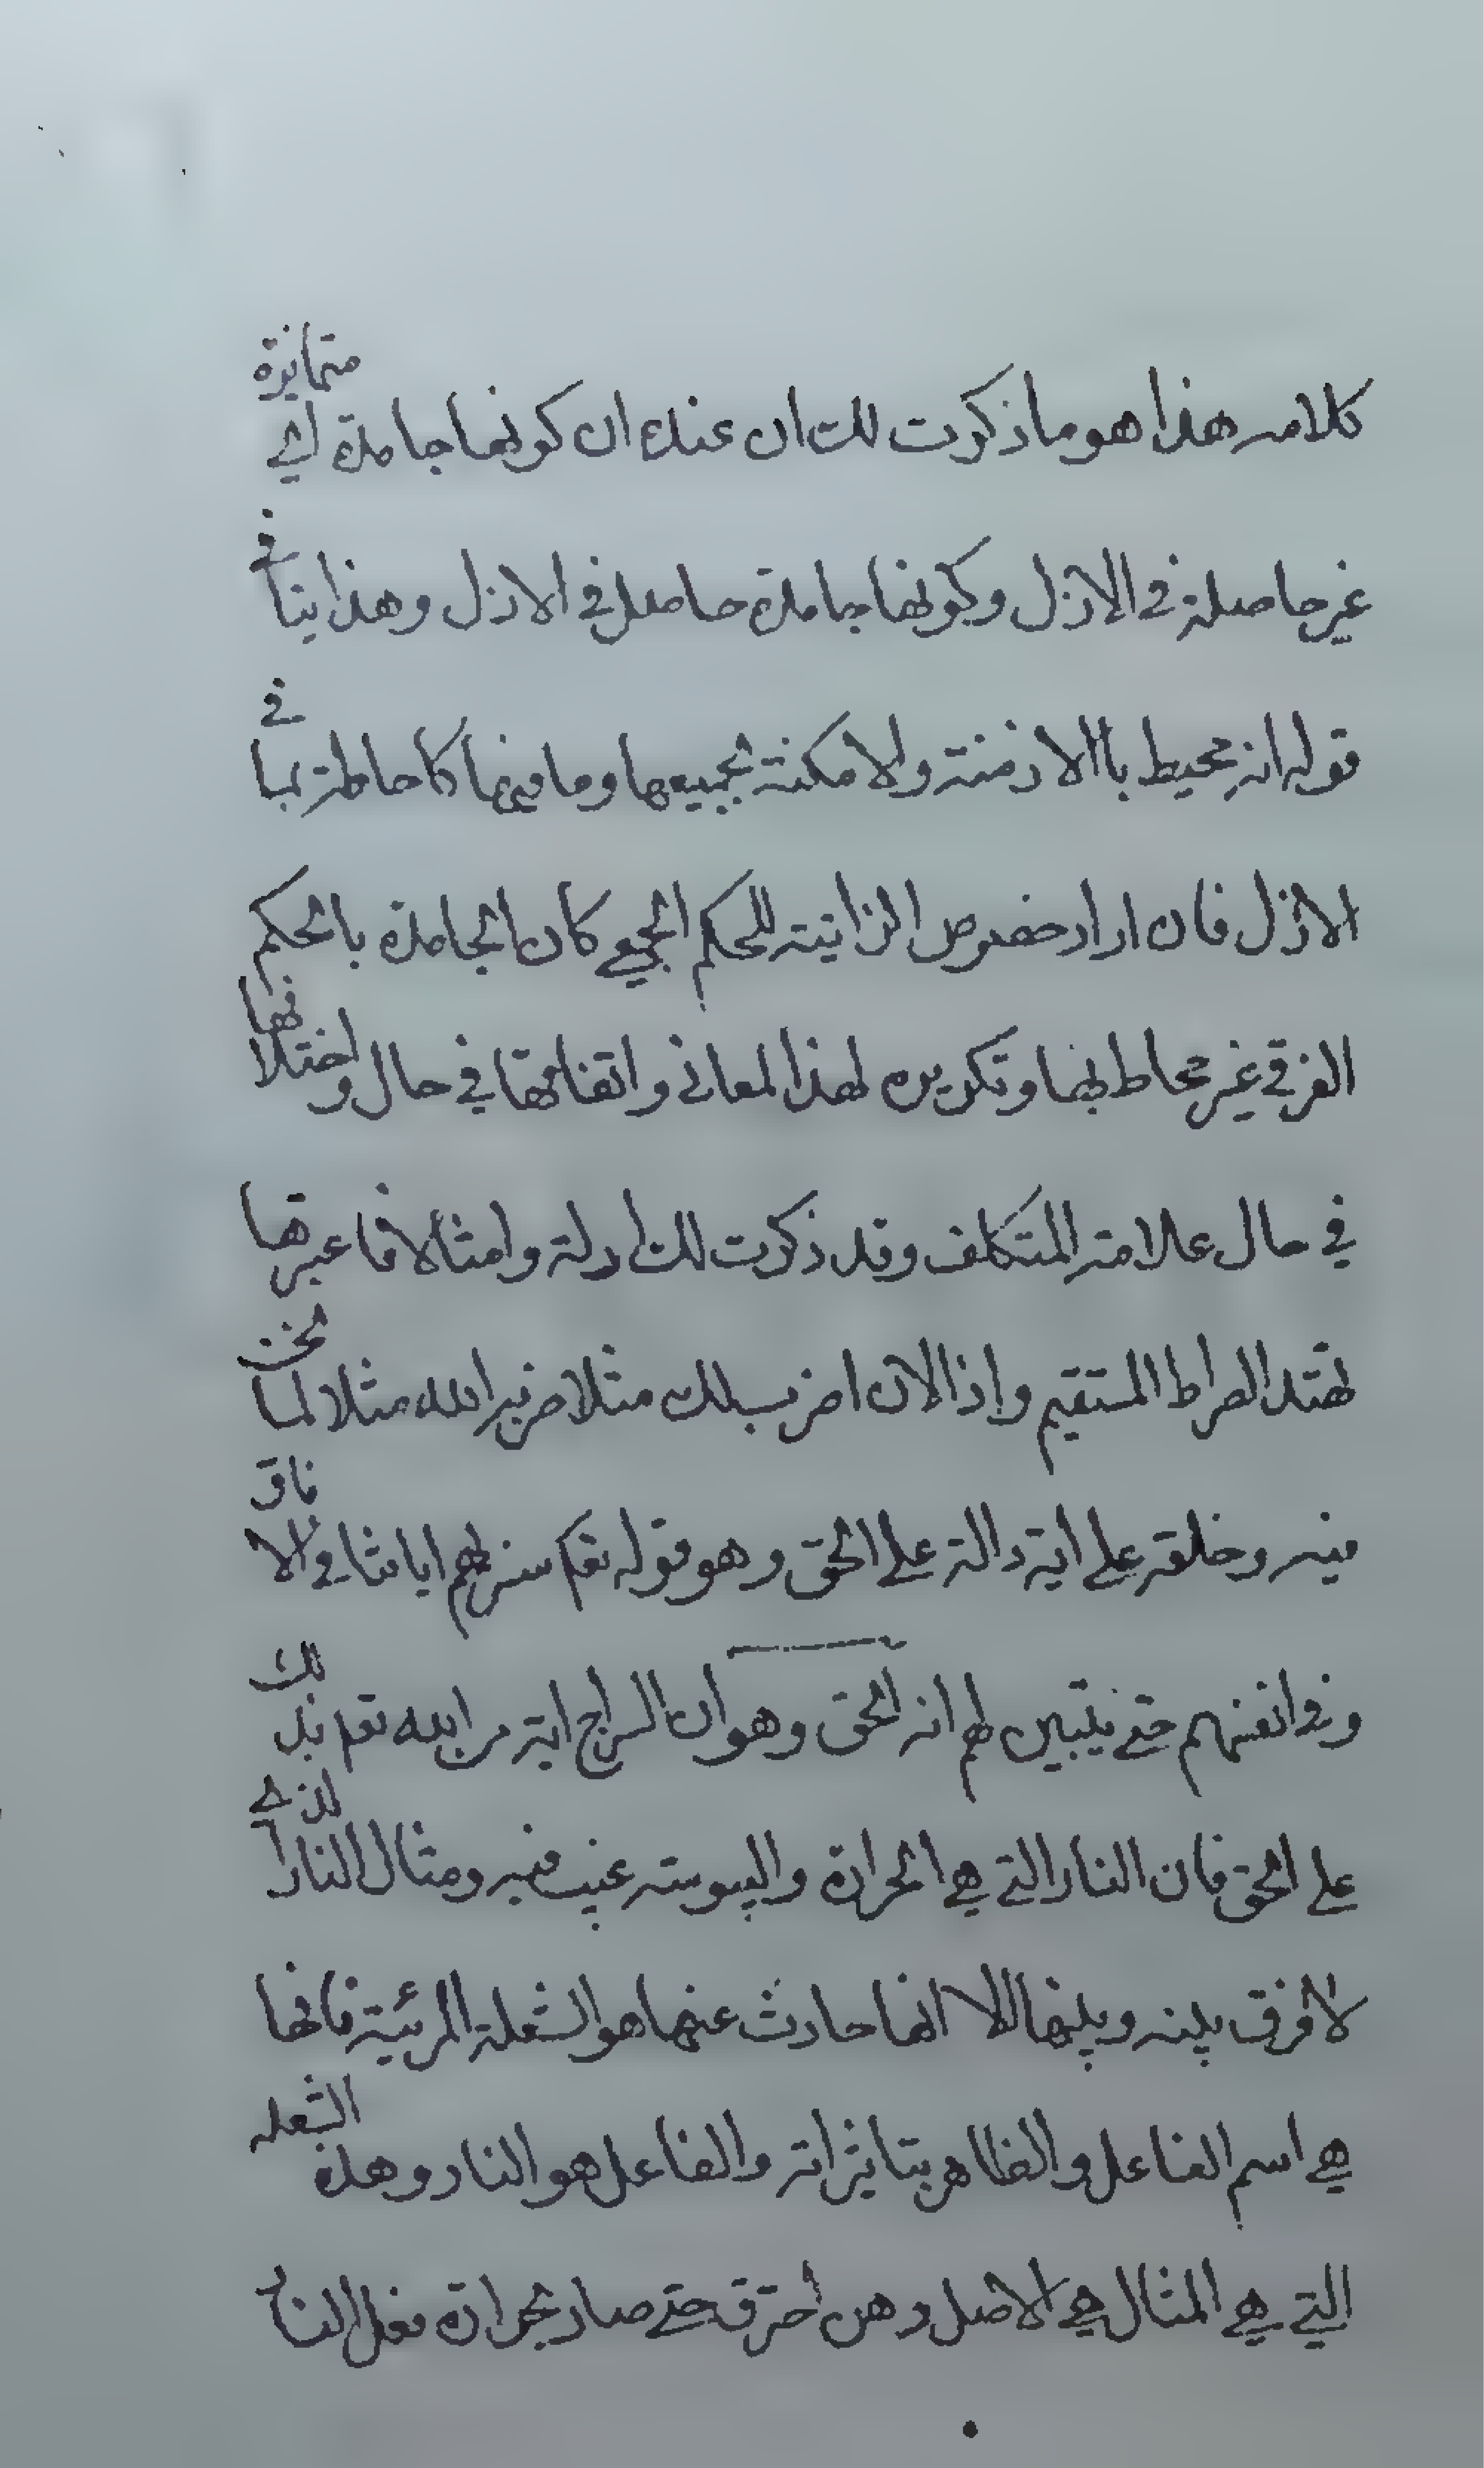 كلامه هذا هو ما ذكرت لك ان عنده ان كونها جامدة اي متمايزة
غير حاصلة في الازل وكونها جامدة حاصل في الازل وهذا ينافي
قوله انه محيط باالازمنة والامكنة بجميعها وما فيهما كاحاطته بما في
الازل فان اراد خصوص الزاتية للحكم الجمعي كان الجامدة بالحكم
الفرقي غير محاط بها وتكريره لهذا لمعاني واتفاقها في حال واختلافها
في حال علامة المتكلف وقد ذكرت لك ادلة وامثالا فاعبر بها
تهتد الصراط المستقيم واذا الان اضرب لك مثلا ضربه الله مثلا لما نحن
فيه وخلقه على اية دالة على الحق وهو قوله تعم سنريهم اياتنا في الافاق
وفي انفسهم حتى يتبين لهم انه الحق وهو ان السراج اية من الله تعم بذلك
على الحق فان النار التي هي الحرارة واليبوسة غيب فيه ومثال النار الذي
لا فرق بينه وبينها اللا انها حادث عنهما هو الشعلة المرئية فانها
هي اسم الفاعل والظاهر بتاثيراته والفاعل هو النار وهذه الشعلة
التي هي المثال هي الاصل دهن احترق حتى صار بحرارة فعل النار